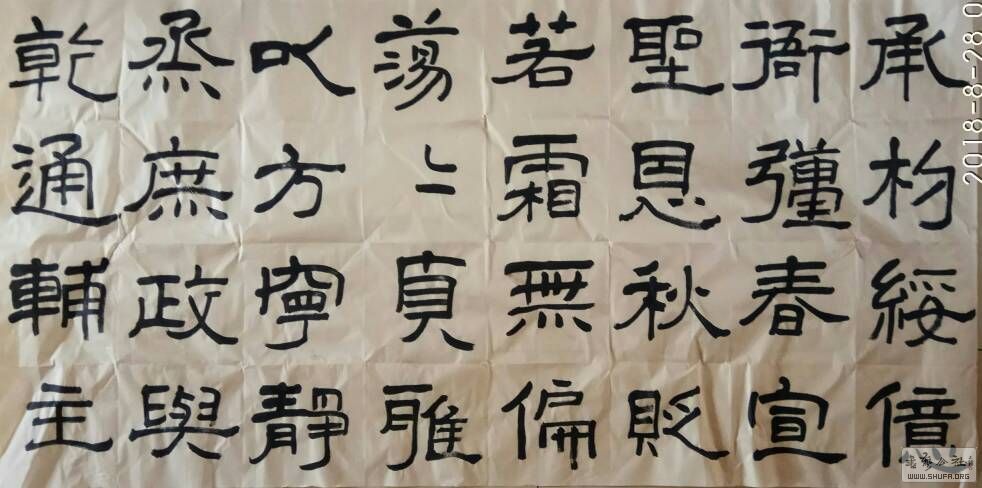 承杓綏億
衙彊春宣
聖恩秋貶
若霜無偏
蕩〻貞雅
以方寧靜
烝庶政與
乾通輔主
2018-8-28 0
WWW.SHUFA.ORG